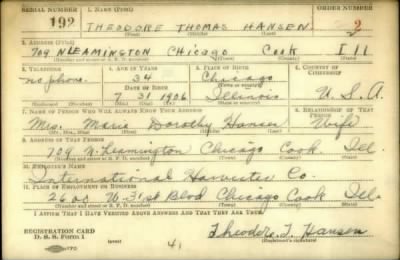 SERIAL NUMBER 1. NAME (Print) ORDER NUMBER
192 THEODORE THOMAS HANSEN 2
(First) (Middle) (Last)
2. ADDRESS (Print)
709 N LEAMINGTON Chicago Cook Ill
3. TELEPHONE 4. AGE IN YEARS 5. PLACE OF BIRTH 6. COUNTRY OF CITIZENSHIP
no phone 34 Chicago
DATE OF BIRTH (Town or county)
7 31 1906 Illinois U.S.A
(Exchange) (Number) (Mo.) (Day) (Yr.) (State or country)
7. NAME OF PERSON WHO WILL ALWAYS KNOW YOUR ADDRESS 8. RELATIONSHIP OF THAT PERSON
Mrs. Marie Dorothy Hansen Wife
(Mr., Mrs., Miss) (First) (Middle) (Last)
9. ADDRESS OF THAT PERSON
709 N. Leamington Chicago Cook Ill.
10. EMPLOYER'S NAME
International Harvester Co.
11. PLACE OF EMPLOYMENT OR BUSINESS
2600 W. 31st Blvd Chicago Cook Ill.
I AFFIRM THAT I HAVE VERIFIED ABOVE ANSWERS AND THAT THEY ARE TRUE.
REGISTRATION CARD
D. S. S. Form 1 (over) Theodore T. Hansen
(Registrant's signature)